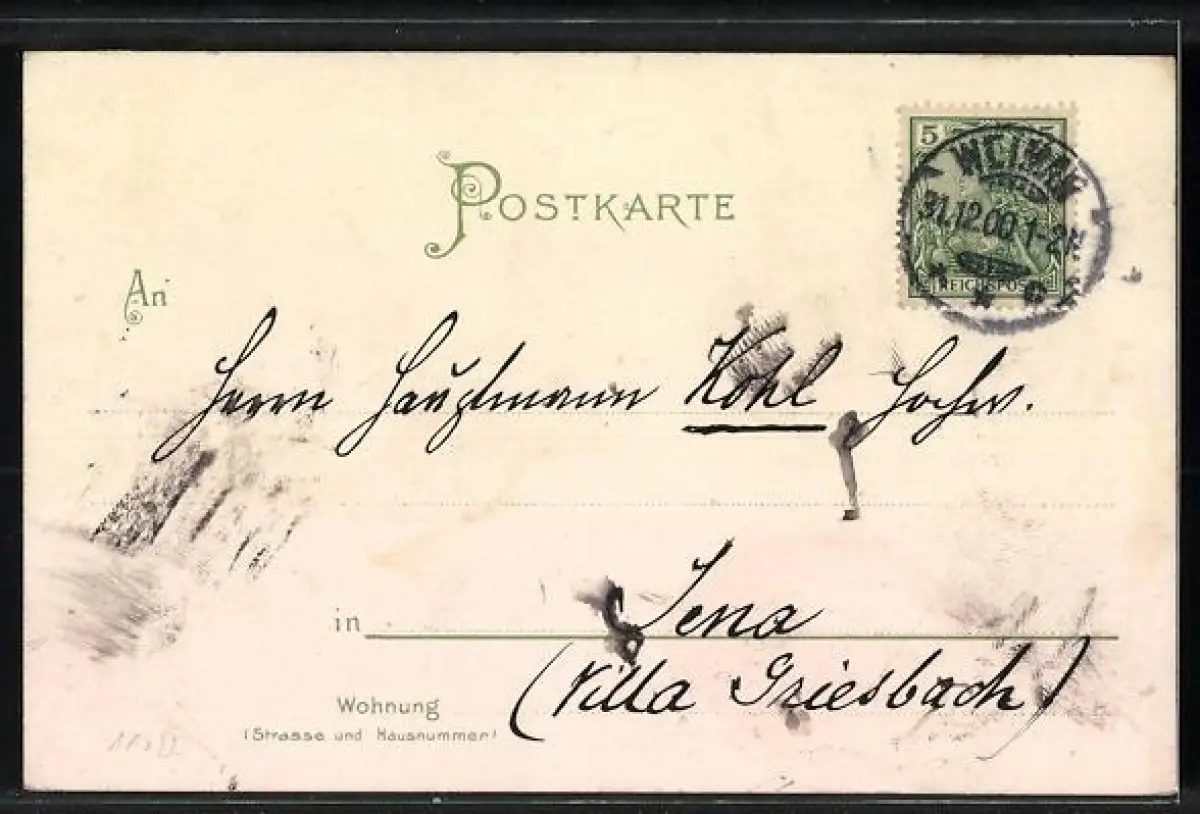 POSTKARTE
5
WEIMAR
31.12.00. 1-2N.
* * c
REICHSPOST
An
Herrn Hauptmann Kohl Hochw.
in Jena
(Villa Griesbach)
Wohnung
(Strasse und Hausnummer)